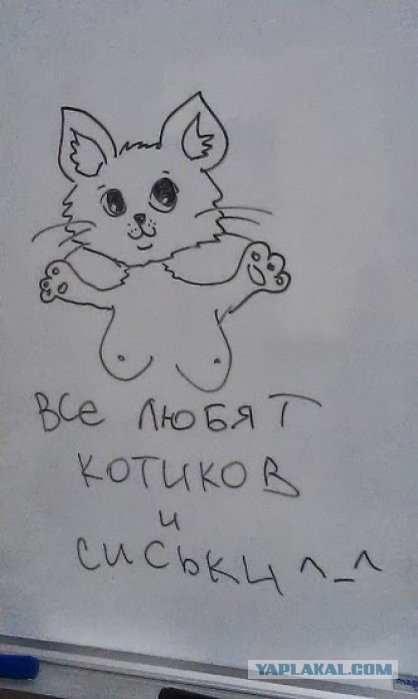 ВСЕ ЛЮБЯТ
КОТИКОВ
и
СИСЬКИ ^_^
YAPLAKAL.COM